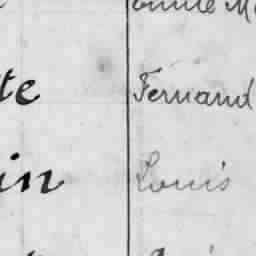 te Fernand
in Louis